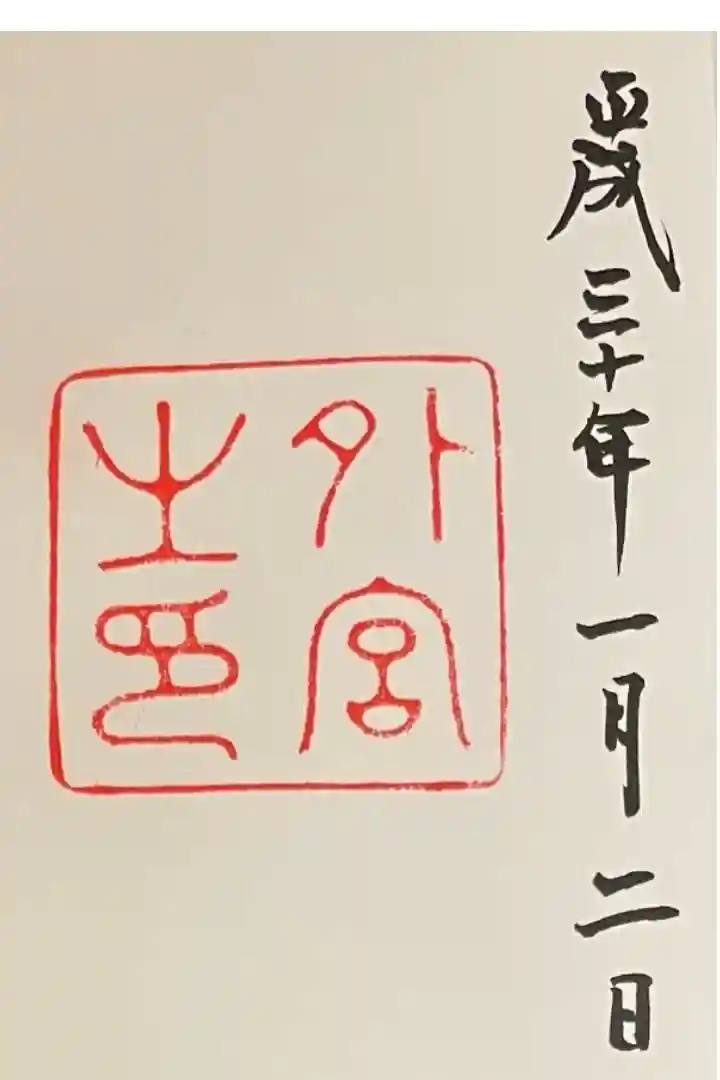 平成三十年一月二日
外宮
之印